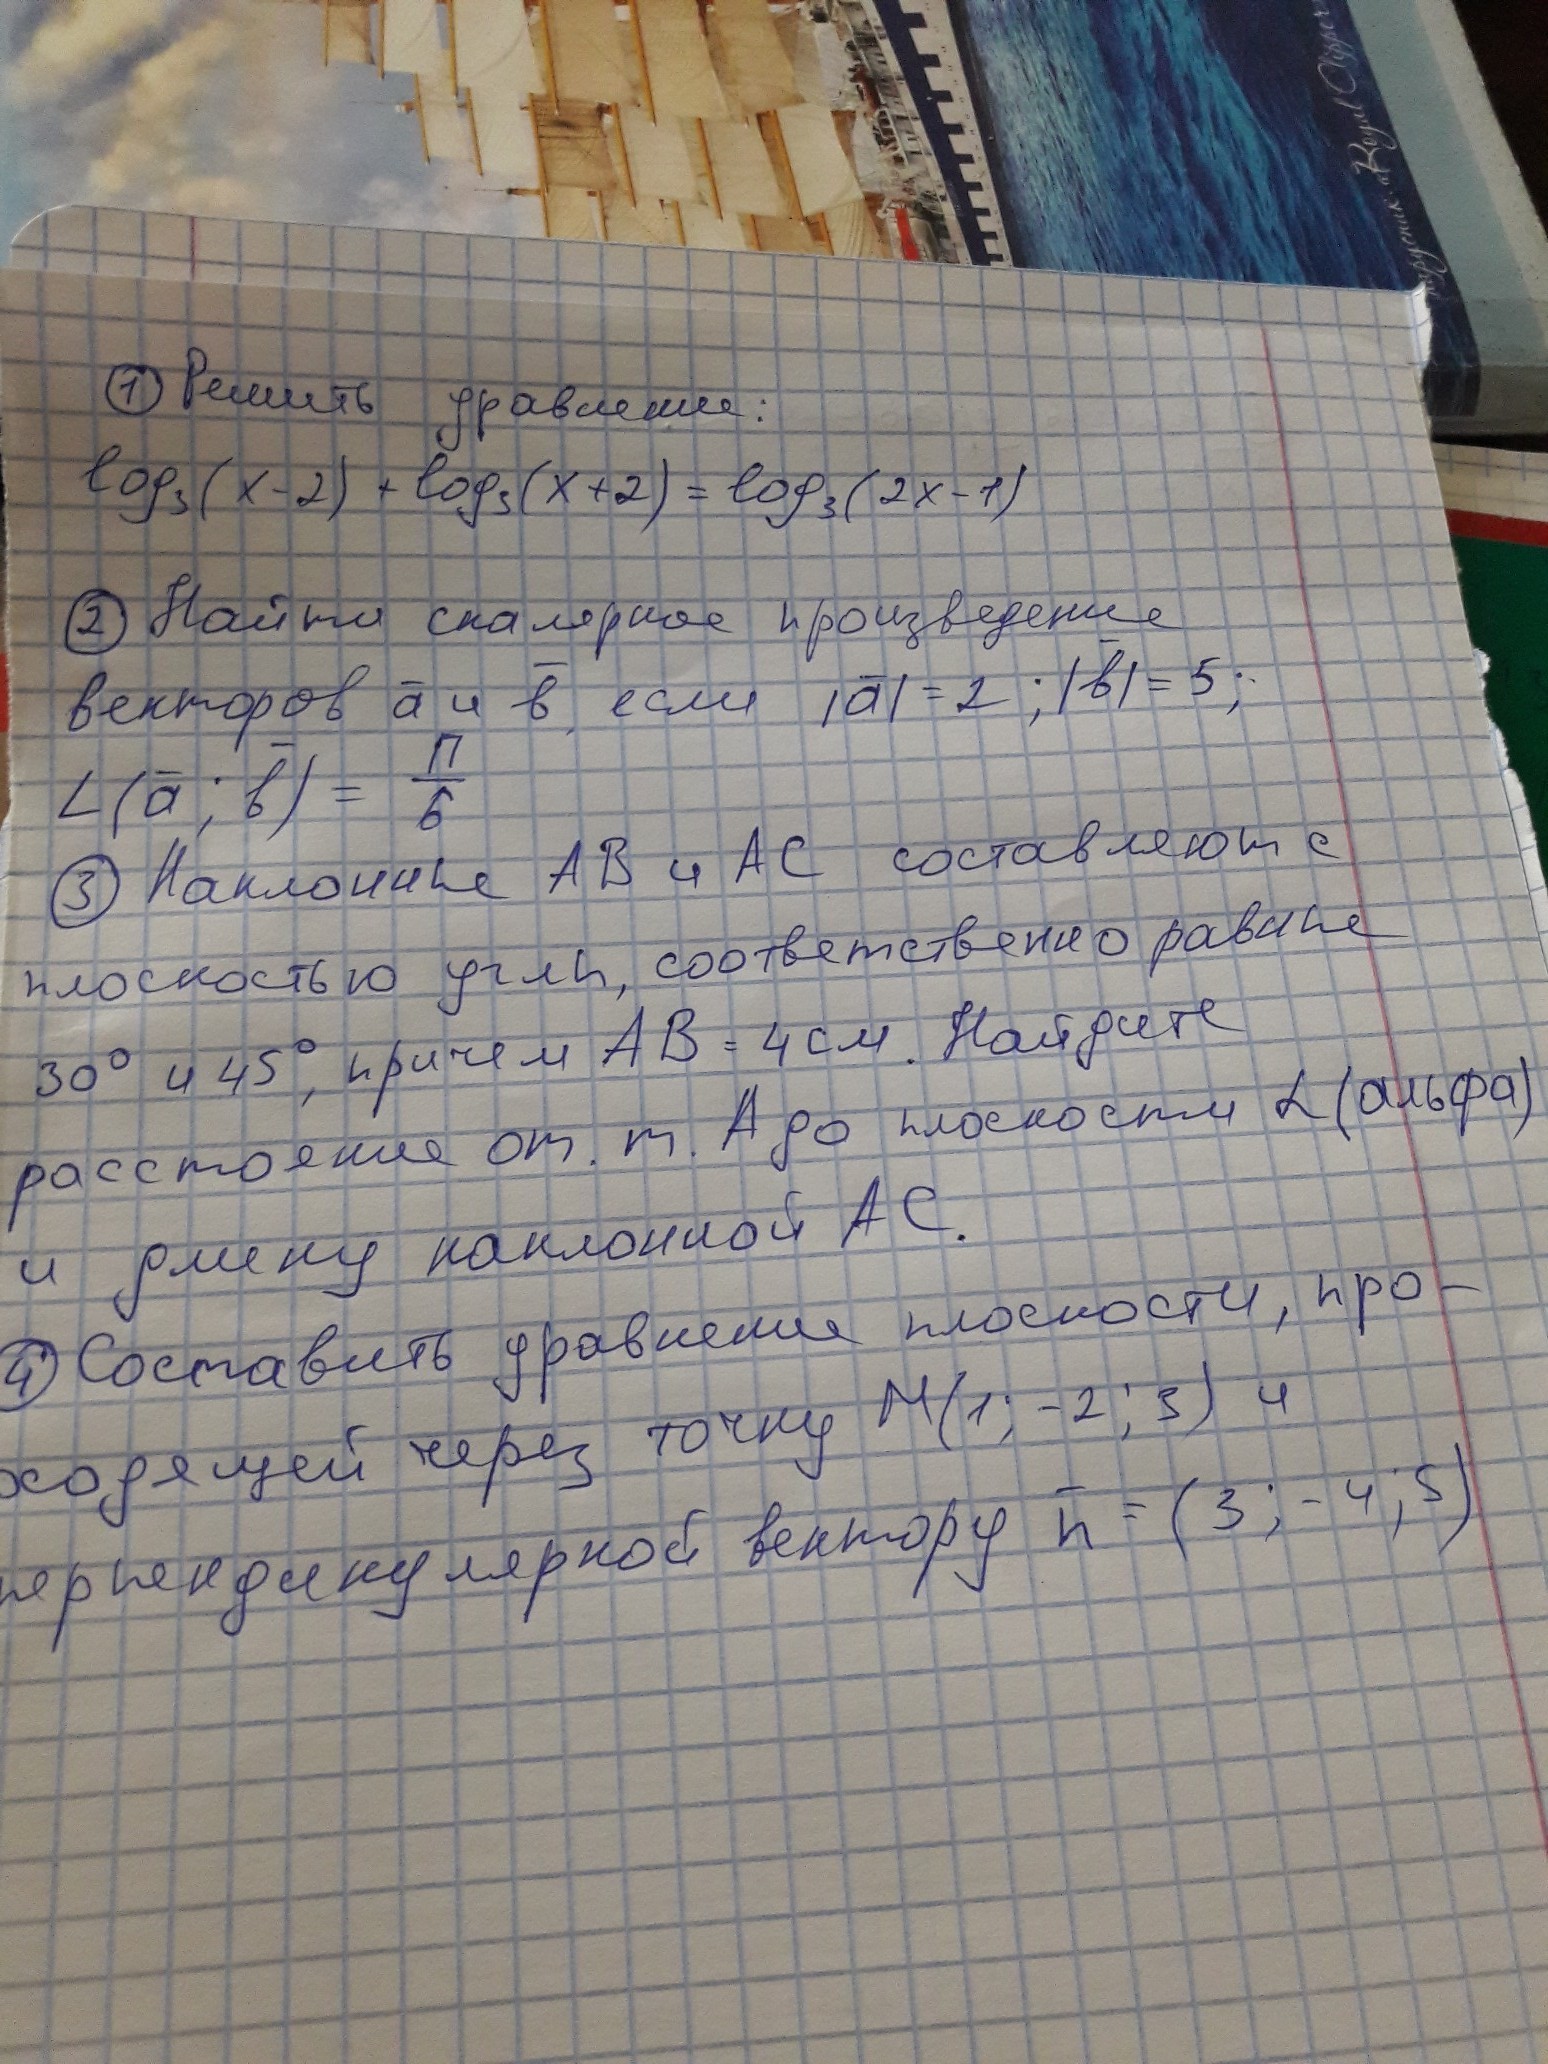 парусник «Royal Clipper
① Решить уравнение:
log₃(x-2) + log₃(x+2) = log₃(2x-1)
② Найти скалярное произведение
векторов a̅ и b̅, если |a̅| = 2; |b̅| = 5;
∠(a̅; b̅) = π/6
③ Наклонные АВ и АС составляют с
плоскостью углы, соответственно равные
30° и 45°, причем АВ = 4 см. Найдите
расстояние от. т. А до плоскости α (альфа)
и длину наклонной АС.
④ Составить уравнение плоскости, про-
ходящей через точку М(1; -2; 3) и
перпендикулярной вектору n̅ = (3; -4; 5)